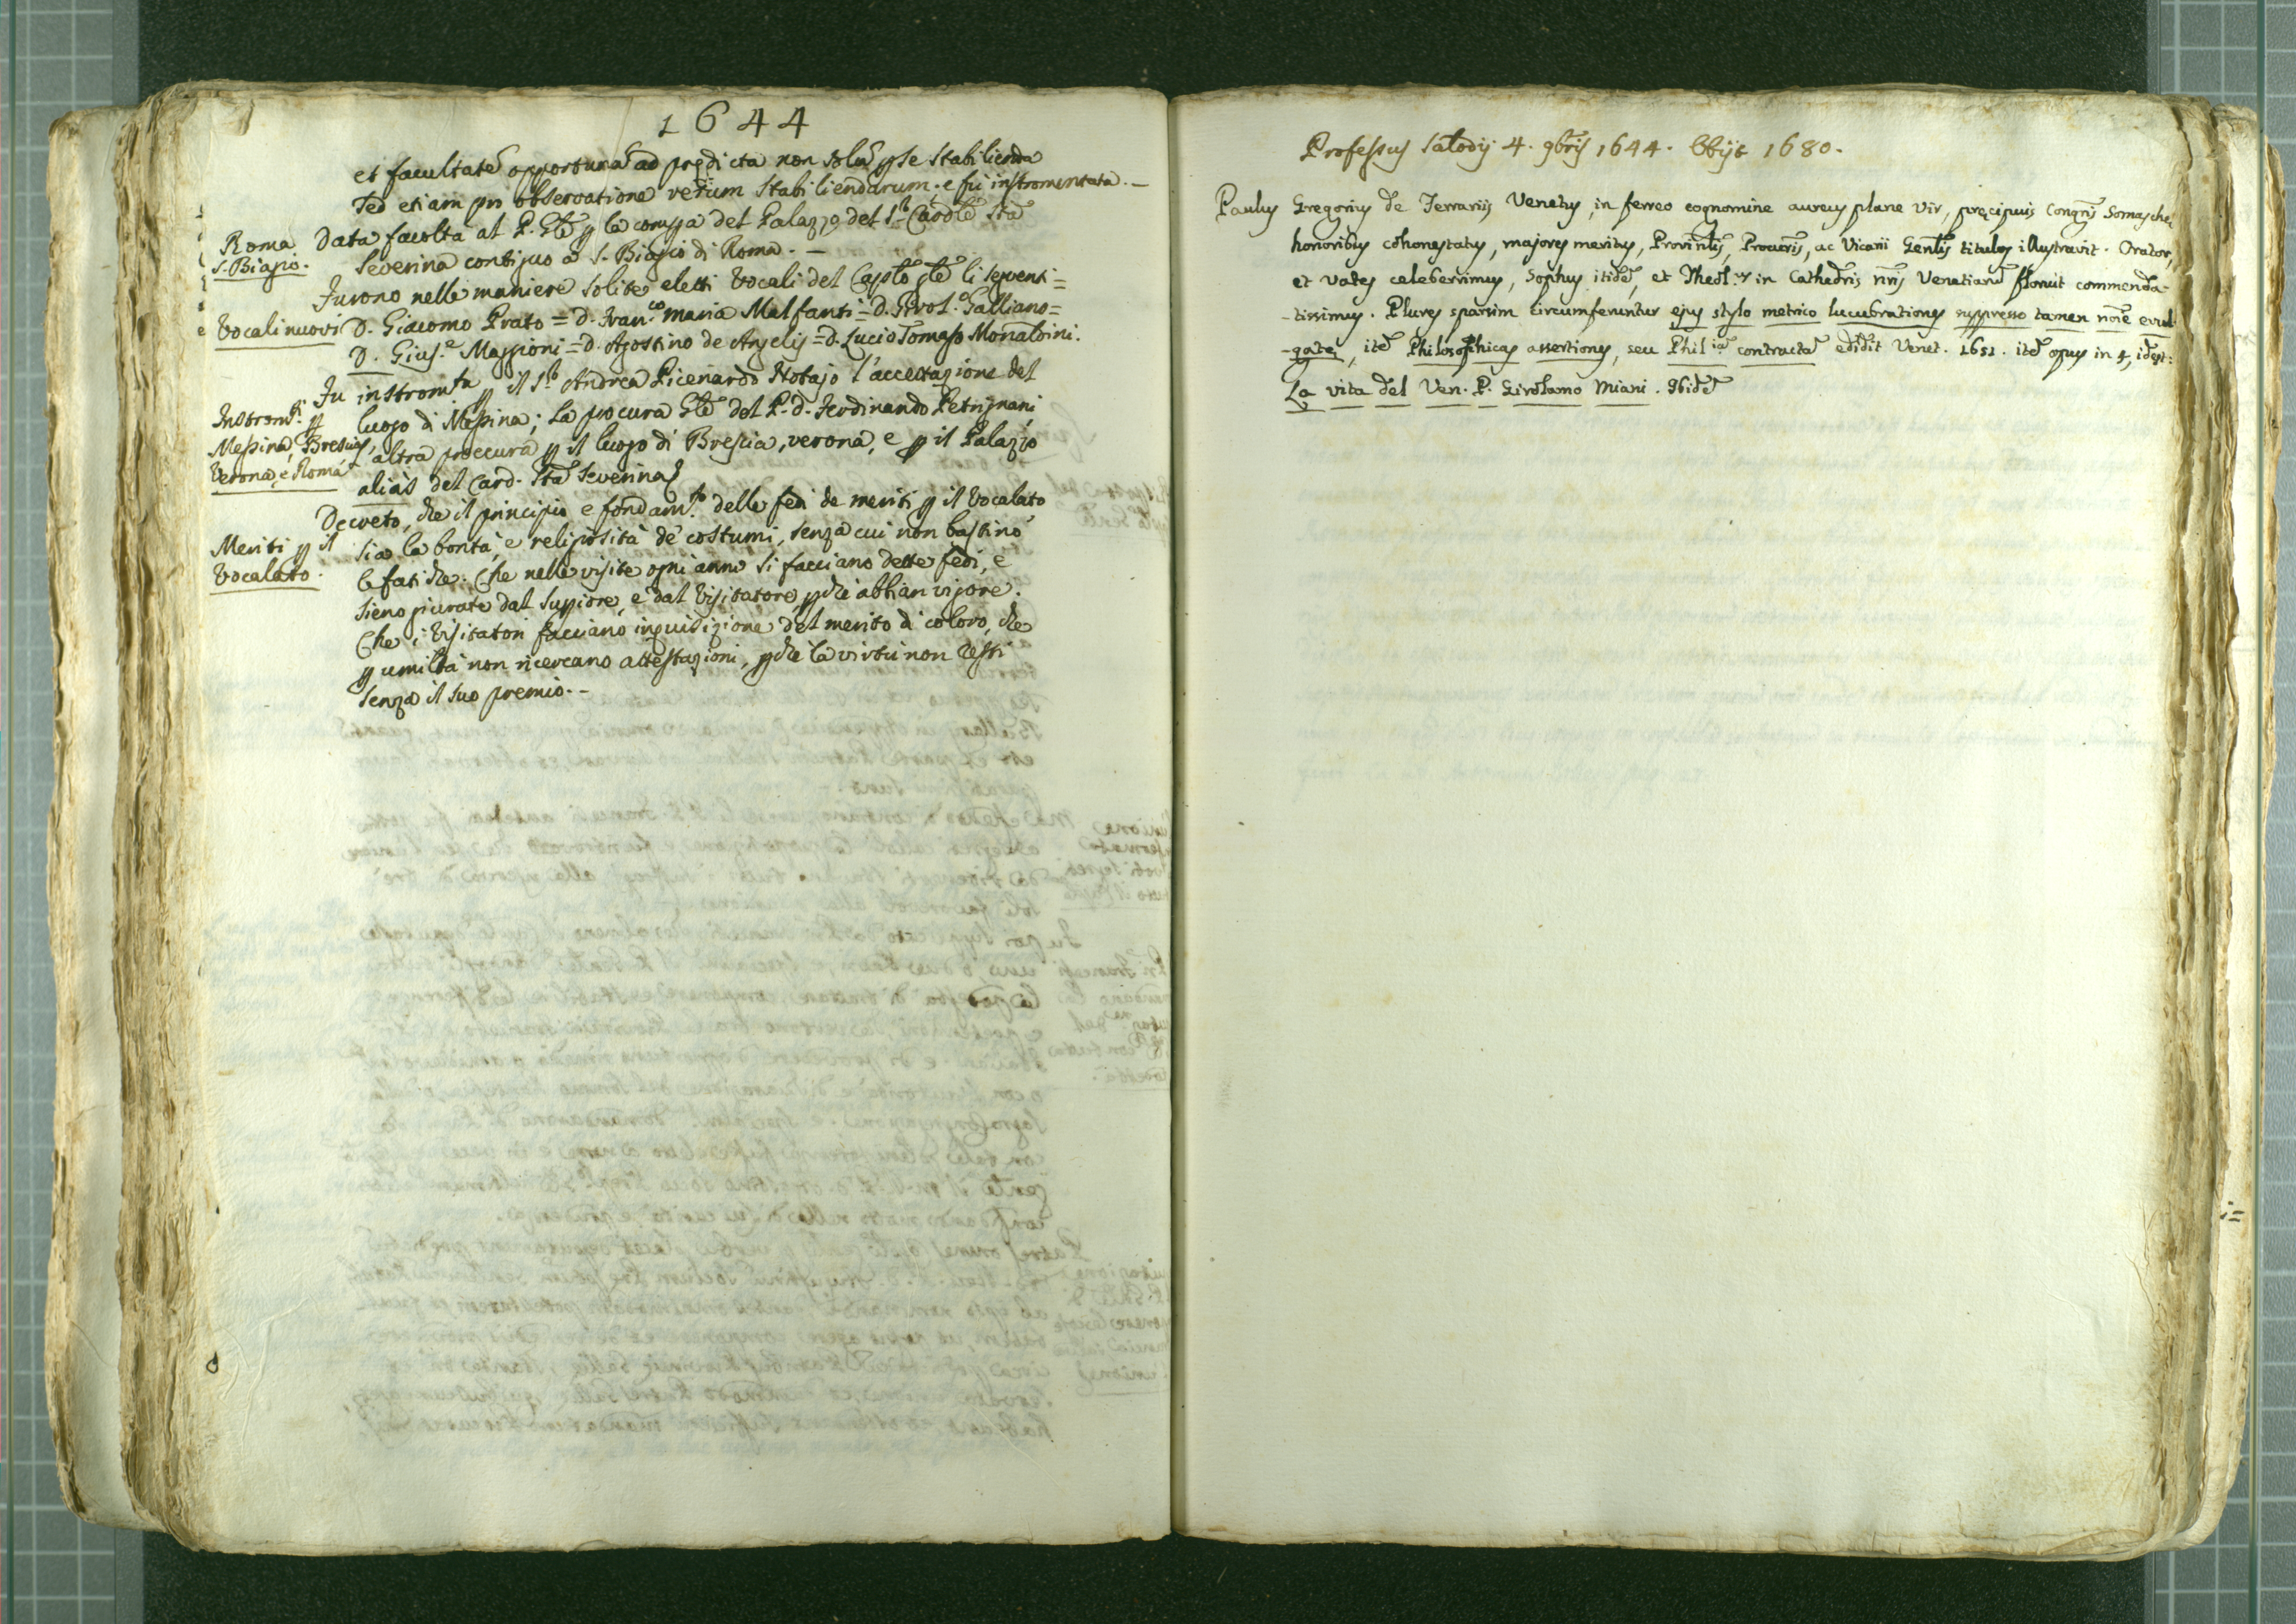 1644
et facultatẽ opportunã ad prędicta non solũ ꝑ se stabilienda
sed etiam pro observatione rerum stabiliendarum. e fù instromentata. —
Roma
S. Biagio.
Data facoltà al P. Gñle ꝑ la compra del Palazzo del S.r Cardle Sta
Severina contiguo à S. Biagio di Roma. —
Vocali nuovi
Furono nelle maniere solite eletti Vocali del Caplõ gñle li seguenti =
D. Giacomo Prato = D. Fran.co Maria Malfanti = D. Girol.o Galliano =
D. Gius.e Maggioni = D. Agostino de Angelis = D. Lucio Tomaso Monaldini.
Instromti ꝑ
Messina, Brescia,
Verona, e Roma
Fu instromta ꝑ il S.r Andrea Picenardo Notajo l'accettazione del
luogo di Messina; la procura Gñle del P. D. Ferdinando Petrignani
altra proccura ꝑ il luogo di Brescia, Verona, e ꝑ il Palazzo
alias del Card. Sta Severina
Meriti ꝑ il
Vocalato.
Decreto, che il principio e fondam.to delle fedi de meriti ꝑ il Vocalato
sia la bontà, e religiosità de costumi, senza cui non bastino
le fatiche: Che nelle visite ogni anno si facciano dette fedi, e
sieno giurate dal Supiore, e dal Visitatore, ꝑche abbian vigore.
Che i Visitatori facciano inquisizione del merito di coloro, che
ꝑ umiltà non ricercano attestazioni, ꝑche la virtù non resti
senza il suo premio. —
Professus Salodij 4. 9bris 1644. Obijt 1680.
Paulus Gregorius de Ferrariis Venetus, in ferreo cognomine aureus plane vir, pręcipuis Congr̃nis Somaschę
honoribus cohonestatus, majores meritus, Provintĩlis, Procur̃is, ac Vicarii Gen̄tlis titulos illustravit. Orator,
et Vates celeberrimus, Sophus itidẽ, et Theol.us in Cathedris nr̃is Venetiarũ floruit commenda-
-tissimus. Plures sparsim circumferuntur ejus stylo metrico lucubrationes suppresso tamen noĩe evul-
-gatę, itẽ Philosophicas assertiones, seu Phil.iã contractã edidit Venet. 1651. itẽ opus in 4, idest:
La vita del Ven. P. Girolamo Miani. Ibidẽ